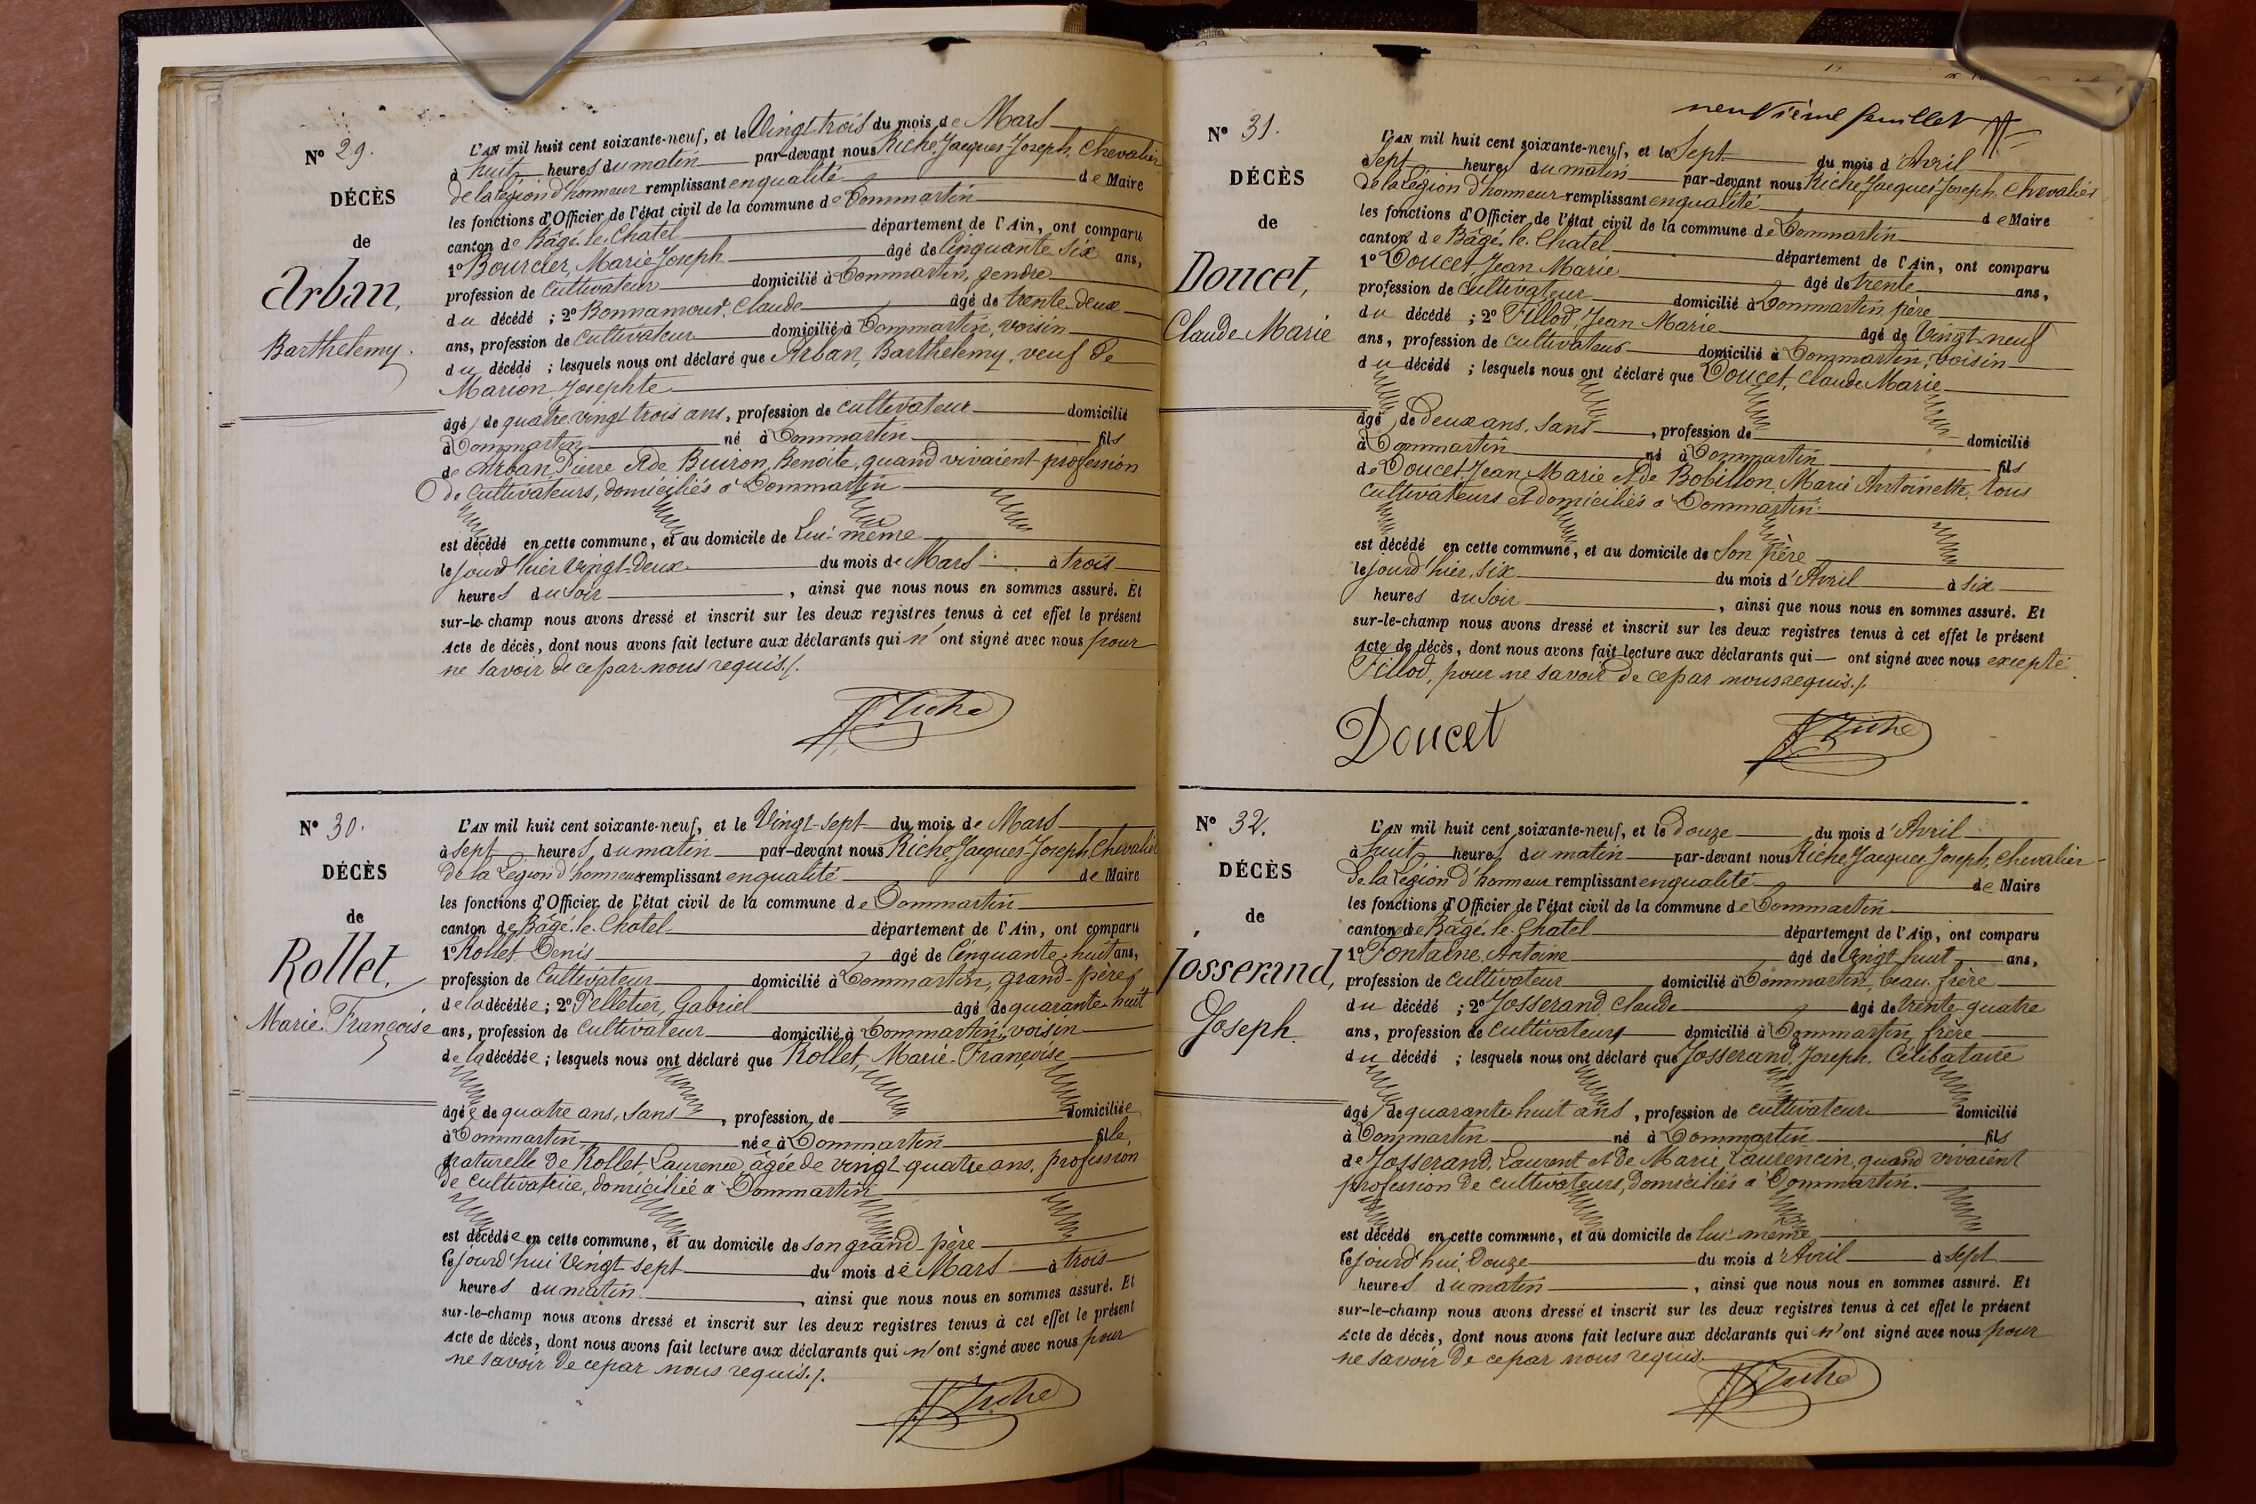 N° 29.
DÉCÈS
de
Arban,
Barthelemy.
L'AN mil huit cent soixante-neuf, et le Vingt trois du mois de Mars
à huit heures du matin par-devant nous Riche, Jacques Joseph, Chevalier
de la Légion d'honneur remplissant en qualité de Maire
les fonctions d'Officier de l'état civil de la commune de Dommartin
canton de Bâgé-le-Chatel département de l'Ain, ont comparu
1° Bourcier, Marie Joseph âgé de Cinquante Six ans,
profession de Cultivateur domicilié à Dommartin, gendre
du décédé ; 2° Bonnamour, Claude âgé de trente-deux
ans, profession de Cultivateur domicilié à Dommartin, voisin
du décédé ; lesquels nous ont déclaré que Arban, Barthelemy, veuf de
Marion, Josephte
âgé de quatre vingt trois ans, profession de cultivateur domicilié
à Dommartin né à Dommartin fils
de Arban, Pierre et de Buiron, Benoite, quand vivaient profession
de Cultivateurs, domiciliés à Dommartin
est décédé en cette commune, et au domicile de Lui-même
le jourd'hier Vingt-deux du mois de Mars à trois
heures du Soir , ainsi que nous nous en sommes assuré. Et
sur-le-champ nous avons dressé et inscrit sur les deux registres tenus à cet effet le présent
Acte de décès, dont nous avons fait lecture aux déclarants qui n'ont signé avec nous pour
ne savoir de ce par nous requis./.
JJ Riche
N° 30.
DÉCÈS
de
Rollet,
Marie-Françoise
L'AN mil huit cent soixante-neuf, et le Vingt-Sept du mois de Mars
à sept heures du matin par-devant nous Riche, Jacques Joseph, Chevalier
de la Légion d'honneur remplissant en qualité de Maire
les fonctions d'Officier de l'état civil de la commune de Dommartin
canton de Bâgé-le-Chatel département de l'Ain, ont comparu
1° Rollet Denis âgé de Cinquante-huit ans,
profession de Cultivateur domicilié à Dommartin, grand-père
de la décédée ; 2° Pelletier, Gabriel âgé de quarante-huit
ans, profession de Cultivateur domicilié à Dommartin, voisin
de la décédée ; lesquels nous ont déclaré que Rollet, Marie-Françoise
âgée de quatre ans, Sans , profession de domiciliée
à Dommartin née à Dommartin fille,
naturelle de Rollet, Laurence, âgée de vingt-quatre ans, profession
de cultivatrice, domiciliée à Dommartin
est décédée en cette commune, et au domicile de son grand-père
le jourd'hui Vingt sept du mois de Mars à trois
heures du matin , ainsi que nous nous en sommes assuré. Et
sur-le-champ nous avons dressé et inscrit sur les deux registres tenus à cet effet le présent
Acte de décès, dont nous avons fait lecture aux déclarants qui n'ont signé avec nous pour
ne savoir de ce par nous requis./.
JJ Riche
neuvième feuillet JJ
N° 31.
DÉCÈS
de
Doucet,
Claude-Marie
L'AN mil huit cent soixante-neuf, et le Sept du mois d'Avril
à Sept heures du matin par-devant nous Riche, Jacques Joseph, Chevalier
de la Légion d'honneur remplissant en qualité de Maire
les fonctions d'Officier de l'état civil de la commune de Dommartin
canton de Bâgé-le-Chatel département de l'Ain, ont comparu
1° Doucet Jean Marie âgé de trente ans,
profession de Cultivateur domicilié à Dommartin, père
du décédé ; 2° Fillod, Jean Marie âgé de Vingt-neuf
ans, profession de cultivateur domicilié à Dommartin, voisin
du décédé ; lesquels nous ont déclaré que Doucet, Claude Marie
âgé de Deux ans, Sans , profession de domicilié
à Dommartin né à Dommartin fils
de Doucet Jean-Marie et de Bobillon, Marie Antoinette, tous
cultivateurs et domiciliés à Dommartin.
est décédé en cette commune, et au domicile de Son père
le jourd'hier, Six du mois d'Avril à Six
heures du Soir , ainsi que nous nous en sommes assuré. Et
sur-le-champ nous avons dressé et inscrit sur les deux registres tenus à cet effet le présent
Acte de décès, dont nous avons fait lecture aux déclarants qui — ont signé avec nous excepté
Fillod, pour ne savoir de ce par nous requis./.
Doucet JJ Riche
N° 32.
DÉCÈS
de
Josserand,
Joseph.
L'AN mil huit cent soixante-neuf, et le Douze du mois d'Avril
à huit heures du matin par-devant nous Riche, Jacques Joseph, Chevalier
de la Légion d'honneur remplissant en qualité de Maire
les fonctions d'Officier de l'état civil de la commune de Dommartin
canton de Bâgé-le-Chatel département de l'Ain, ont comparu
1° Fontaine, Antoine âgé de Vingt huit ans,
profession de cultivateur domicilié à Dommartin, beau-frère
du décédé ; 2° Josserand, Claude âgé de trente-quatre
ans, profession de cultivateurs domicilié à Dommartin, frère
du décédé ; lesquels nous ont déclaré que Josserand, Joseph, Célibataire
âgé de quarante-huit ans , profession de cultivateur domicilié
à Dommartin né à Dommartin fils
de Josserand, Laurent et de Marie, Laurencin, quand vivaient
profession de cultivateurs, domiciliés à Dommartin.
est décédé en cette commune, et au domicile de lui-même
le jourd'hui, Douze du mois d'Avril à Sept
heures du matin , ainsi que nous nous en sommes assuré. Et
sur-le-champ nous avons dressé et inscrit sur les deux registres tenus à cet effet le présent
Acte de décès, dont nous avons fait lecture aux déclarants qui n'ont signé avec nous pour
ne savoir de ce par nous requis.
JJ Riche